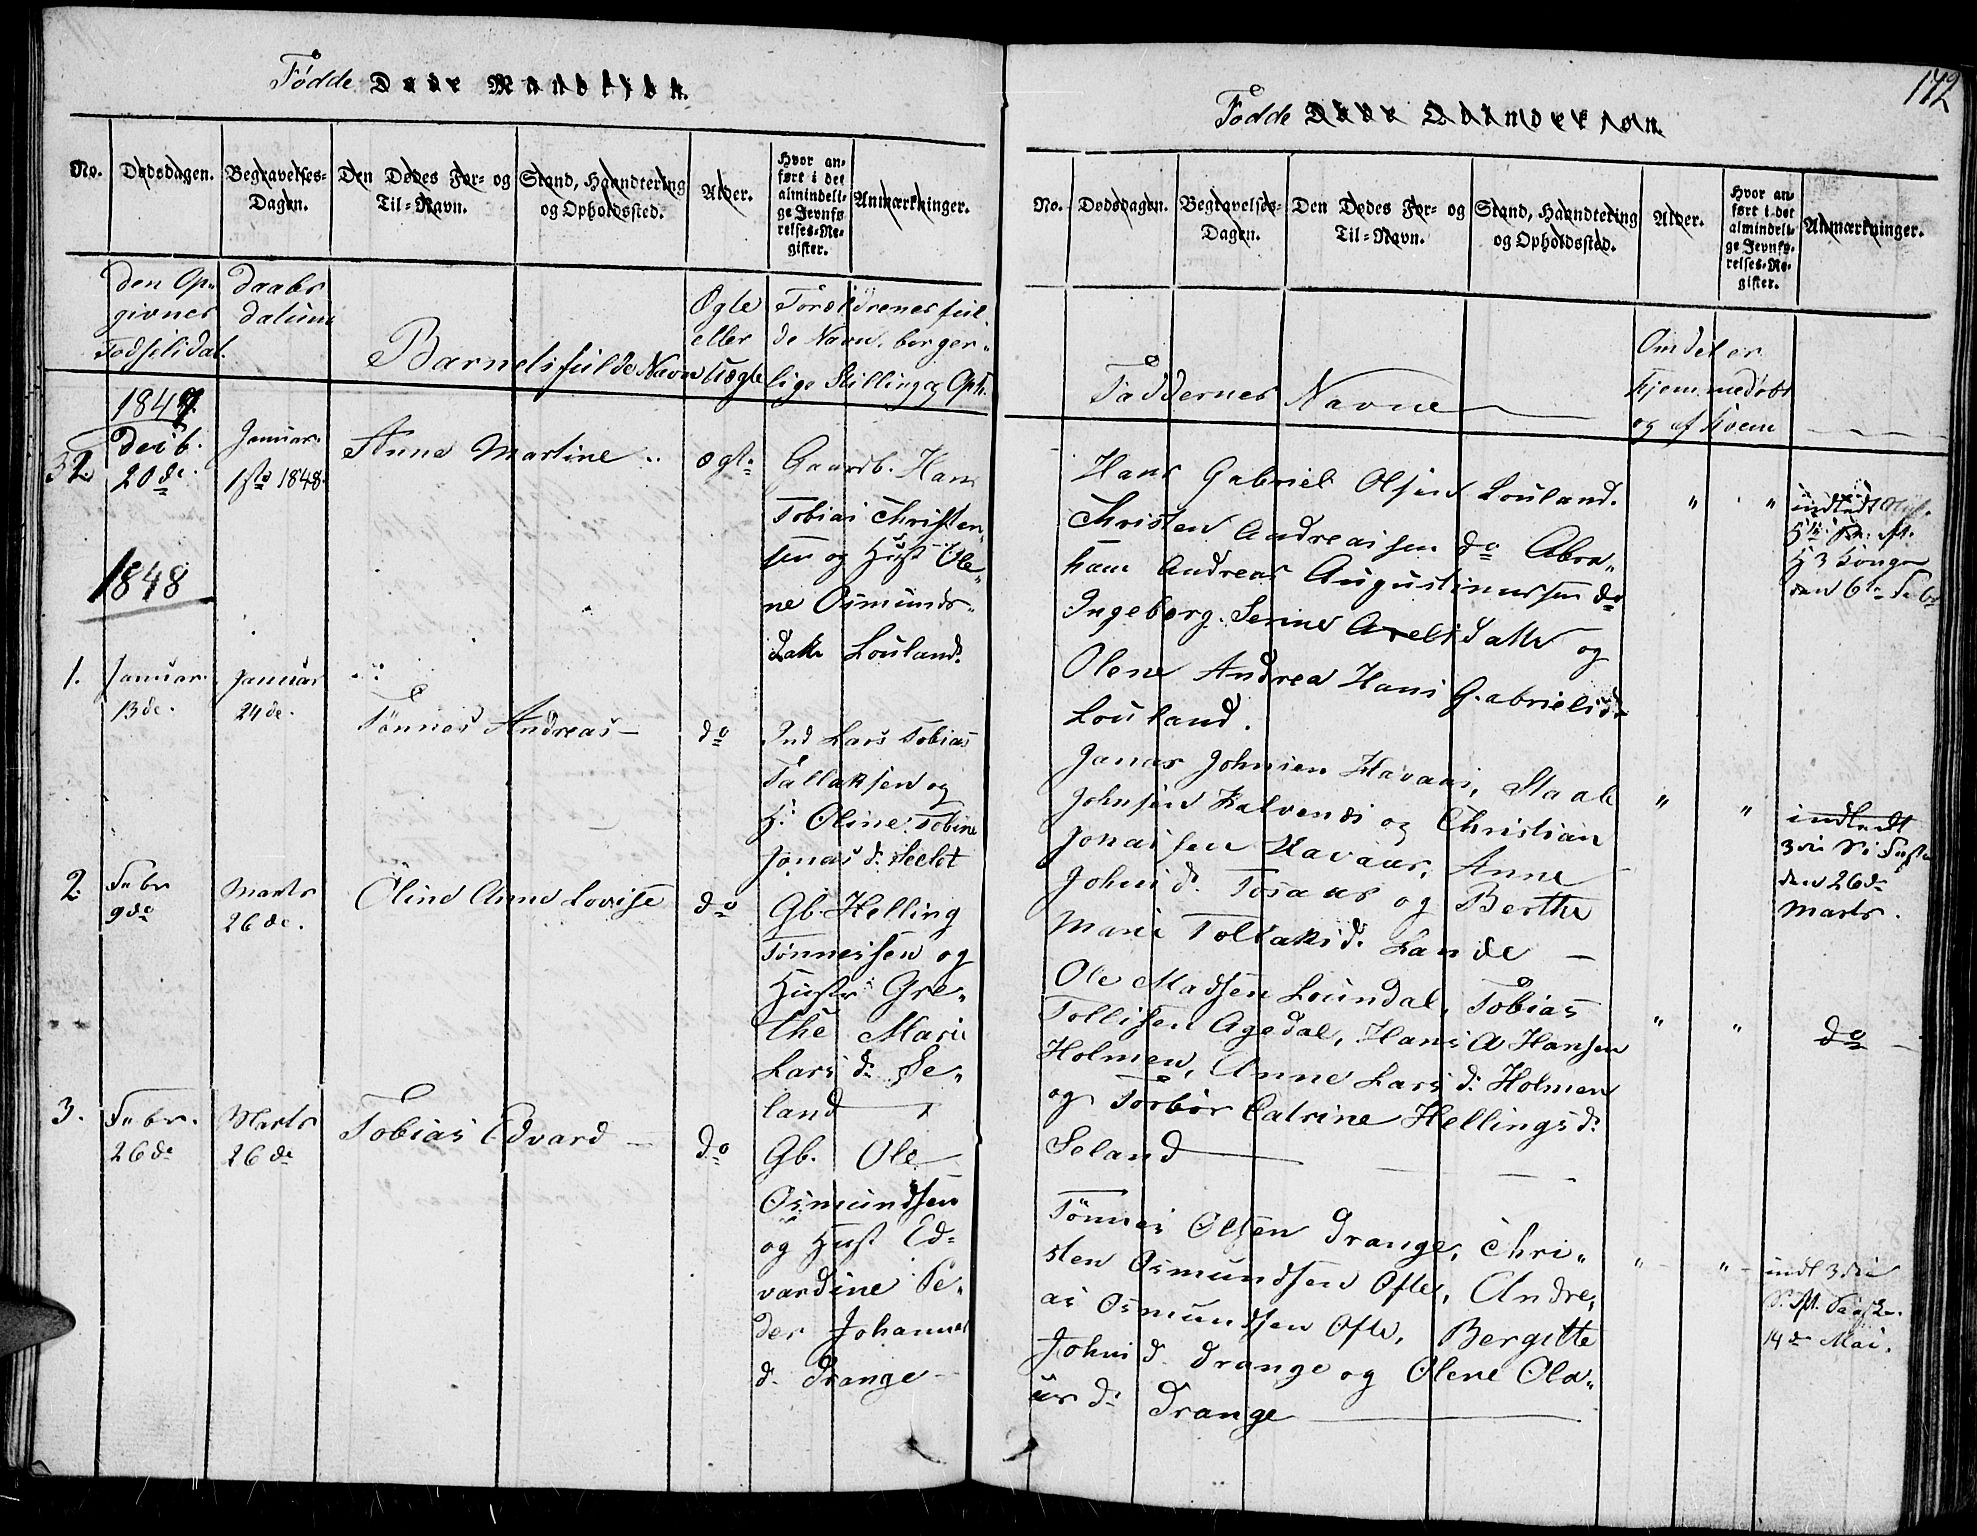 Fødde Døde Mandkjøn.
No. Dødsdagen. Begravelses-Dagen. Den Dødes For- og Til-Navn. Stand, Haandtering og Opholdssted. Alder. Hvor anført i det almindelige Jevnførelses-Register. Anmærkninger.
den Opgivnes Fødselsdat. Daabs datum Barnets fulde Navn Ægte eller Uægte Forældrenes fulde Navn, borgerlige Stilling og Oph.
1847
52 Decb. 20de Januar 1ste 1848 Anne Martine ægt. Gaardb. Hans
Tobias Christen-
sen og Hust Ole-
ne Osmunds-
datr Louland.
1848
1. Januar 13de. Januar 24de. Tønnes Andreas — do Ind Lars Tobias
Tallaksen og
H. Oline Tobine
Jonas d.
2 Febr 9de Marts 26de. Oline Anne Lovise do Gb Helling
Tønnessen og
Hustr Gre-
the Marie
Lars d. Se-
land
3. Febr. 26de Marts 26de Tobias Edvard — do Gb. Ole
Osmundsen
og Hust Ed-
vardine Pe-
der Johannes
d. Drange
172
Fødde Døde Qvindekjøn.
No. Dødsdagen. Begravelses-Dagen. Den Dødes For- og Til-Navn. Stand, Haandtering og Opholdssted. Alder. Hvor anført i det almindelige Jevnførelses-Register. Anmærkninger.
Faddernes Navne Om det er hjemmedøbt og af hvem
Hans Gabriel Olsen Louland.
Christen Andreassen do Abra-
ham Andreas Augustinussen do
Ingeborg Serine Axels datter og
Olene Andrea Hans Gabriels d.
Louland.
" " indledt
den 6te Febr
Jonas Johnsen Havaas, Staale
Johnsen Kalvenes og Christian
Jonassen Havaas, Anne
Johns d. Tosaas og Berthe
Marie Tollaks d. Lande —
" " indledt
3die S. i Faste
den 26de
Marts.
Ole Madsen Loundal, Tobias
Tollisen Agedal, Hans A Hansen
Holmen, Anne Lars d. Holmen
og Torbor Catrine Hellings d.
Seland
" " do
Tønnes Olsen Drange, Chri-
sten Osmundsen Ofte, Andre-
as Osmundsen Ofte, Bergitte
Johns d. Drange og Olene Ola-
us d. Drange
" " indl 3die
S. eft. Paaske
14de Mai.